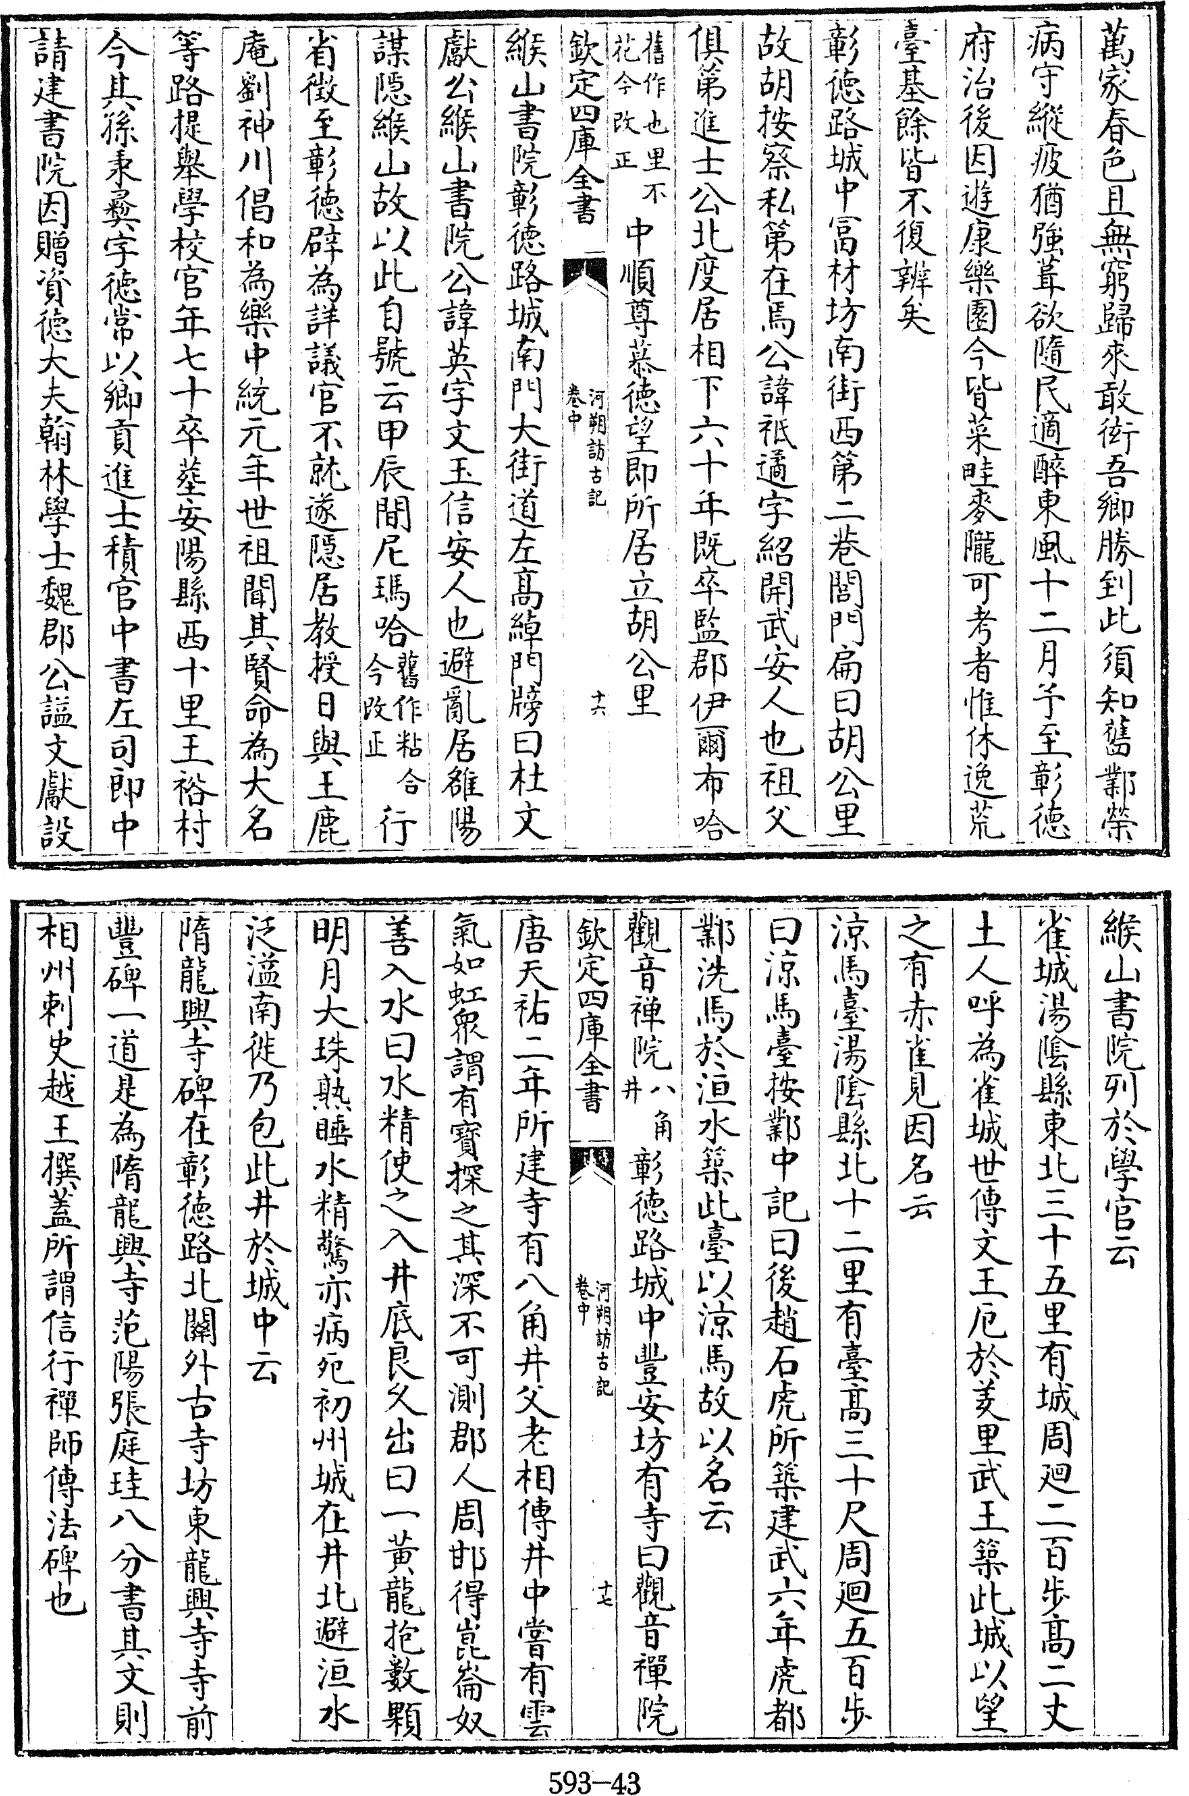 萬家春色且無窮歸來敢衒吾鄉勝到此須知舊鄴榮
病守縱疲猶強葺欲隨民適醉東風十二月予至彰德
府治後因遊康樂園今皆菜畦麥隴可考者惟休逸荒
臺基餘皆不復辨矣
彰徳路城中富材坊南街西第二巷閭門扁曰胡公里
故胡按察私第在焉公諱祗遹字紹開武安人也祖父
俱第進士公北度居相下六十年既卒監郡伊爾布哈
舊作也里不花今改正中順尊慕德望即所居立胡公里
欽定四庫全書
河朔訪古記
卷中
十六
緱山書院彰德路城南門大街道左高綽門牓曰杜文
獻公緱山書院公諱英字文玉信安人也避亂居雒陽
謀隱緱山故以此自號云甲辰間尼瑪哈舊作粘合今改正行
省徵至彰德辟為詳議官不就遂隱居教授日與王鹿
庵劉神川倡和為樂中統元年世祖聞其賢命為大名
等路提舉學校官年七十卒塟安陽縣西十里王裕村
今其孫秉彞字德常以鄉貢進士積官中書左司郎中
請建書院因贈資德大夫翰林學士魏郡公謚文獻設
緱山書院列於學官云
雀城湯隂縣東北三十五里有城周迴二百步高二丈
土人呼為雀城世傳文王厄於羑里武王築此城以望
之有赤雀見因名云
涼馬臺湯隂縣北十二里有臺高三十尺周迴五百步
曰涼馬臺按鄴中記曰後趙石虎所築建武六年虎都
鄴洗馬於洹水築此臺以涼馬故以名云
觀音禪院八角井彰德路城中豐安坊有寺曰觀音禪院
欽定四庫全書
河朔訪古記
卷中
十七
唐天祐二年所建寺有八角井父老相傳井中嘗有雲
氣如虹衆謂有寳探之其深不可測郡人周邯得崑崙奴
善入水曰水精使之入井底良乆出曰一黃龍抱數顆
明月大珠熟睡水精驚亦病死初州城在井北避洹水
泛溢南徙乃包此井於城中云
隋龍興寺碑在彰德路北關外古寺坊東龍興寺寺前
豐碑一道是為隋龍興寺范陽張庭珪八分書其文則
相州刺史越王撰蓋所謂信行禪師傳法碑也
593-43